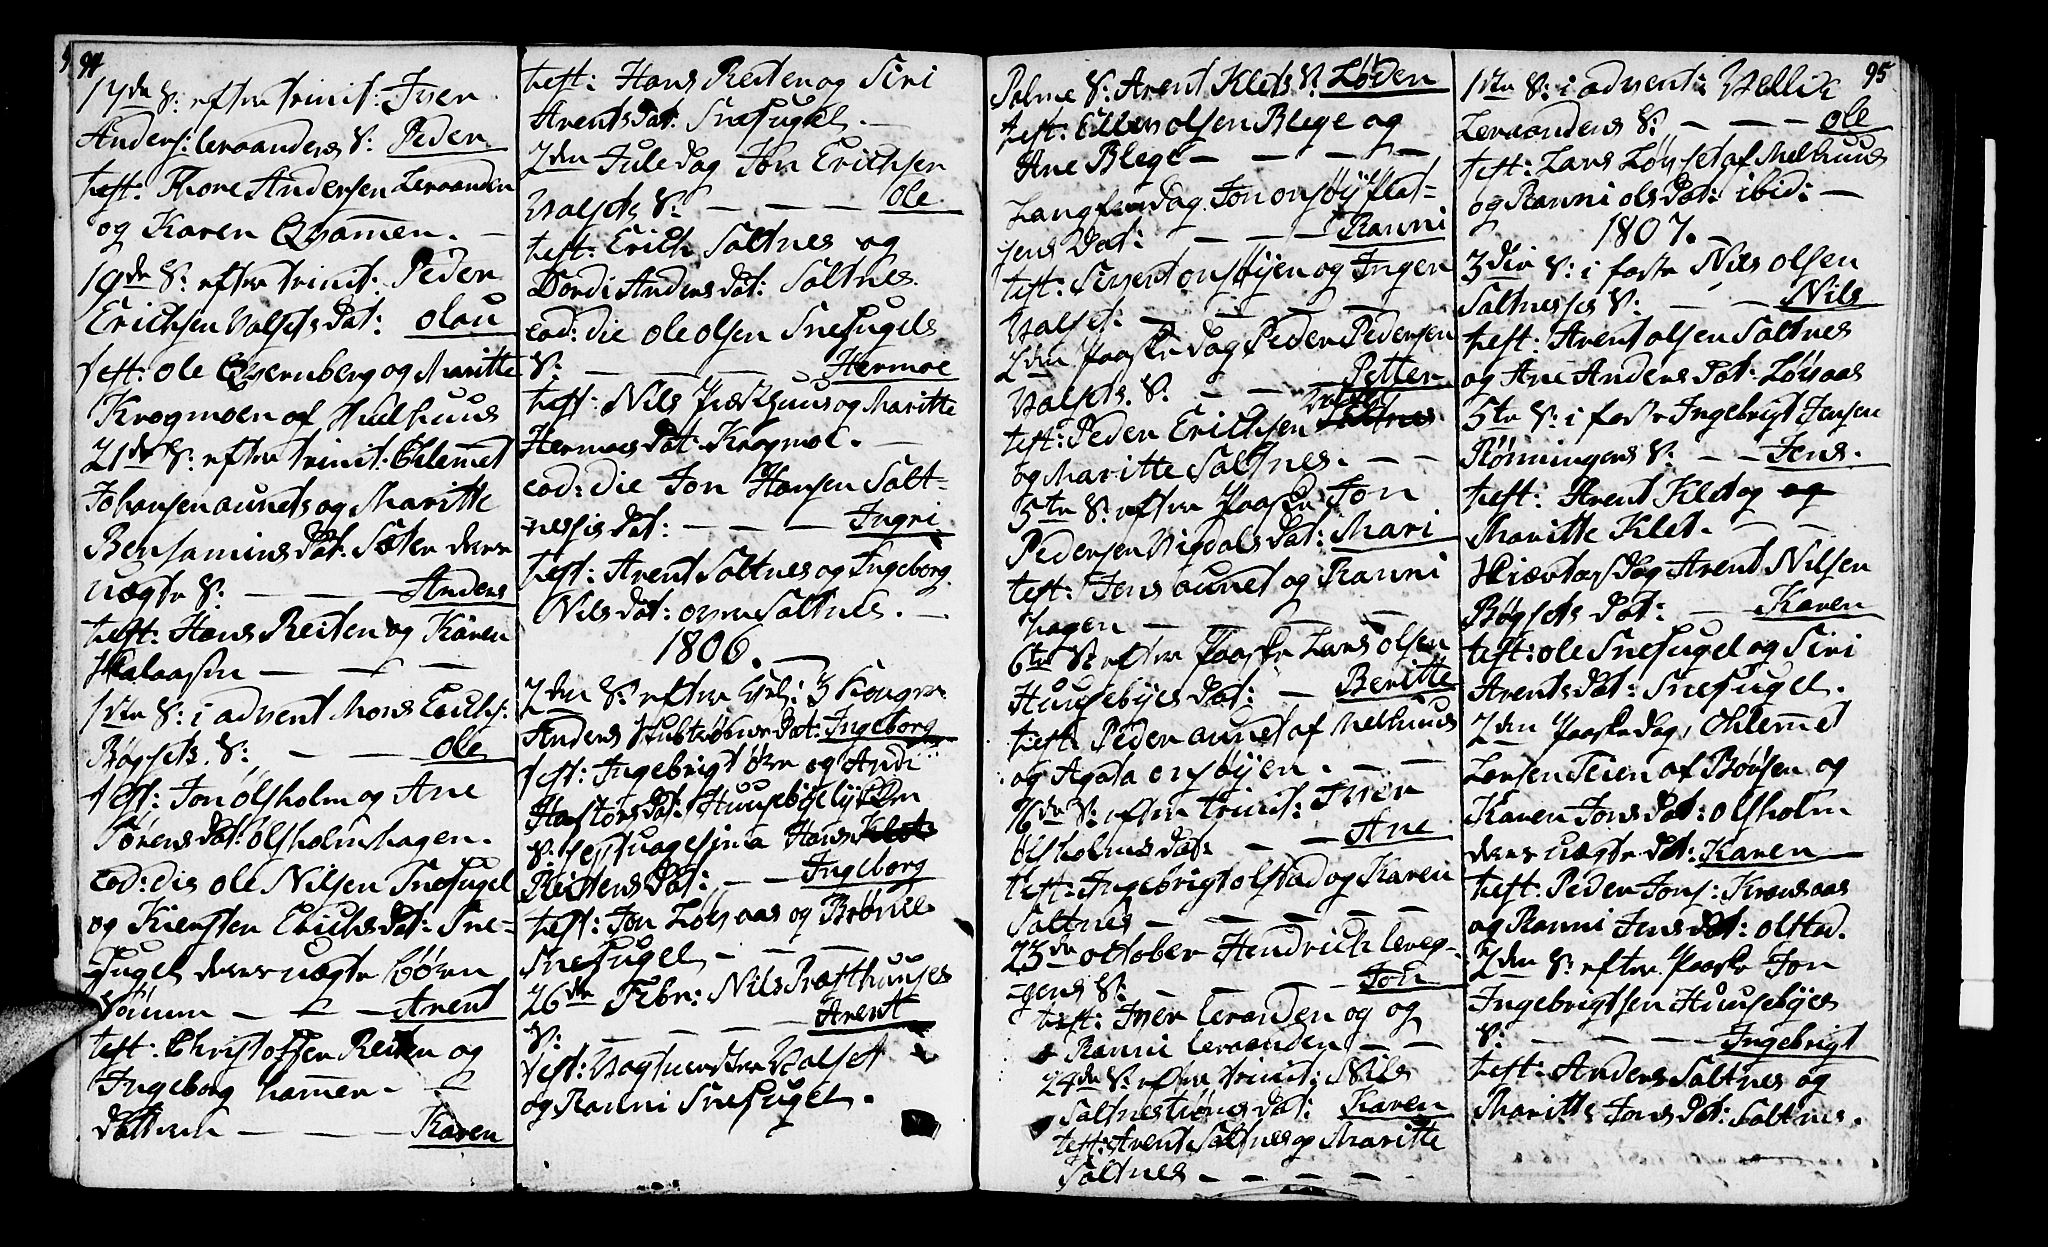 94
17de S: efter trinit: Iver
Anders: leraandens S: Peder
test: Thore Andersen Leraanden
og Karen Qvamen. —
19de S: efter trinit: Peder
Erichsen Valsets Dat: olau
test: ole Qvernberg og Maritte
Krogmoen af Melhuus
21de S: efter trinit. Chlemet
Johansen aunets og Maritte
Benjamins Dat: Sæter deres
uægte S: — — — Anders
test: Hans Reiten og Karen
Halaasen — — —
1ste S: i advent Mons Erichs:
Bøgsets S: — — ole
test: Jon ølsholm og Ane
Sørens Dat: ølsholmhagen.
eod: die ole Nilsen Snefugel
og Kiersten Erichs Dat: Sne=
fugel deres uægte børn
Sønnen — — — Arent
test: Christoffer Reiten og
Ingeborg hamer. —
Datteren — — — Karen
test: Hans Reiten og Siri
Arents Dat: Snefugel. —
2den Juledag Jon Erichsen
Valsets S: — — — ole
test: Erich Saltnes og
Dordi Anders Dat: Saltnes.
eod: die ole olsen Snefugels
S: — — — — Hermoe
test: Nils Præsthuus og Maritte
Hermoes Dat: Krogmoe. —
eod: die Jon Hansen Salt=
nessis Dat: — — — Ingri
test: Arent Saltnes og Ingeborg
Nils Dat: øvre Saltnes. —
1806. —
2den S: efter Hel: 3 Konger
Anders Dat: Ingeborg
test: Ingebrigt øre og Andi
Hastors Dat: Huusebye
S: septuagesima Hans Klet
Reitens Dat: — — Ingeborg
test: Jon Løvsaas og Brønil
Snefugel — — —
26de Febr: Nils Præsthuuses
S: — — — — Arent
test: Valset
og Ranni Snefugel. —
Palme S: Arent Klets S: Løden
test: Ellev olsen Blege og
Ane Blege — — — —
Langfredag Jon onsøy plad=
sens Dat: — — — Ranni
test: Sivert onsøyen og Ingen
Valset: — — — —
2den Paaske Dag Peder Pedersen
Valsets. S: — — — Petter
test: Peder Erichsen Valset Saltnes
og Maritte Saltnes. — —
5te S: efter Paaske Jon
Pedersen Vigdals Dat: Mari
test: Jens aunet og Ranni
hagen — — — —
6te S: efter Paaske Lars olsen
Huusebyes Dat: — Beritte
test: Peder aunet af Melhuus
og Agata onsøyen. — —
16de S: efter trinit: Iver
ølsholms Dat: — — Ane
test: Ingebrigt olstad og Karen
Saltnes — — — —
23de october Hendrich leveg=
gens S: — — — Jon
test: Iver leranden og og
Ranni leraanden — —
24de S: efter trinit: Nils
Saltnestrøens Dat: Karen
test: Arent Saltnes og Maritte
Saltnes — — — —
95
1ste S: i advent: Vellik
Leraandens S: — — — ole
test: Lars Løvset af Melhuus
og Ranni ols Dat: ibid: —
1807. —
3die S: i faste Nils olsen
Saltnesses S: — — Nils
test: Arent olsen Saltnes
og Ane Anders Dat: Løvsaas
5te S: i faste Ingebrigt Jensen
Rønningens S: — — Jens.
test: Arent Klet og og
Maritte Klet. — —
Skiærtorsdag Arent Nilsen
Bøgsets Dat: — Karen
test: ole Snefugel og Siri
Arents Dat: Snefugel.
2den Paaske Dag, Chlemet
Larsen Teien af Børsen og
Karen Jons Dat: olsholm
deres uægte Dat: Karen
test: Peder Jons: Kransaas
og Ranni Jens Dat: olstad.
2den S: efter Paaske Jon
Ingebrigtsen Huusebyes
S: — — — Ingebrigt
test: Anders Saltnes og
Maritte Jons Dat: Saltnes.